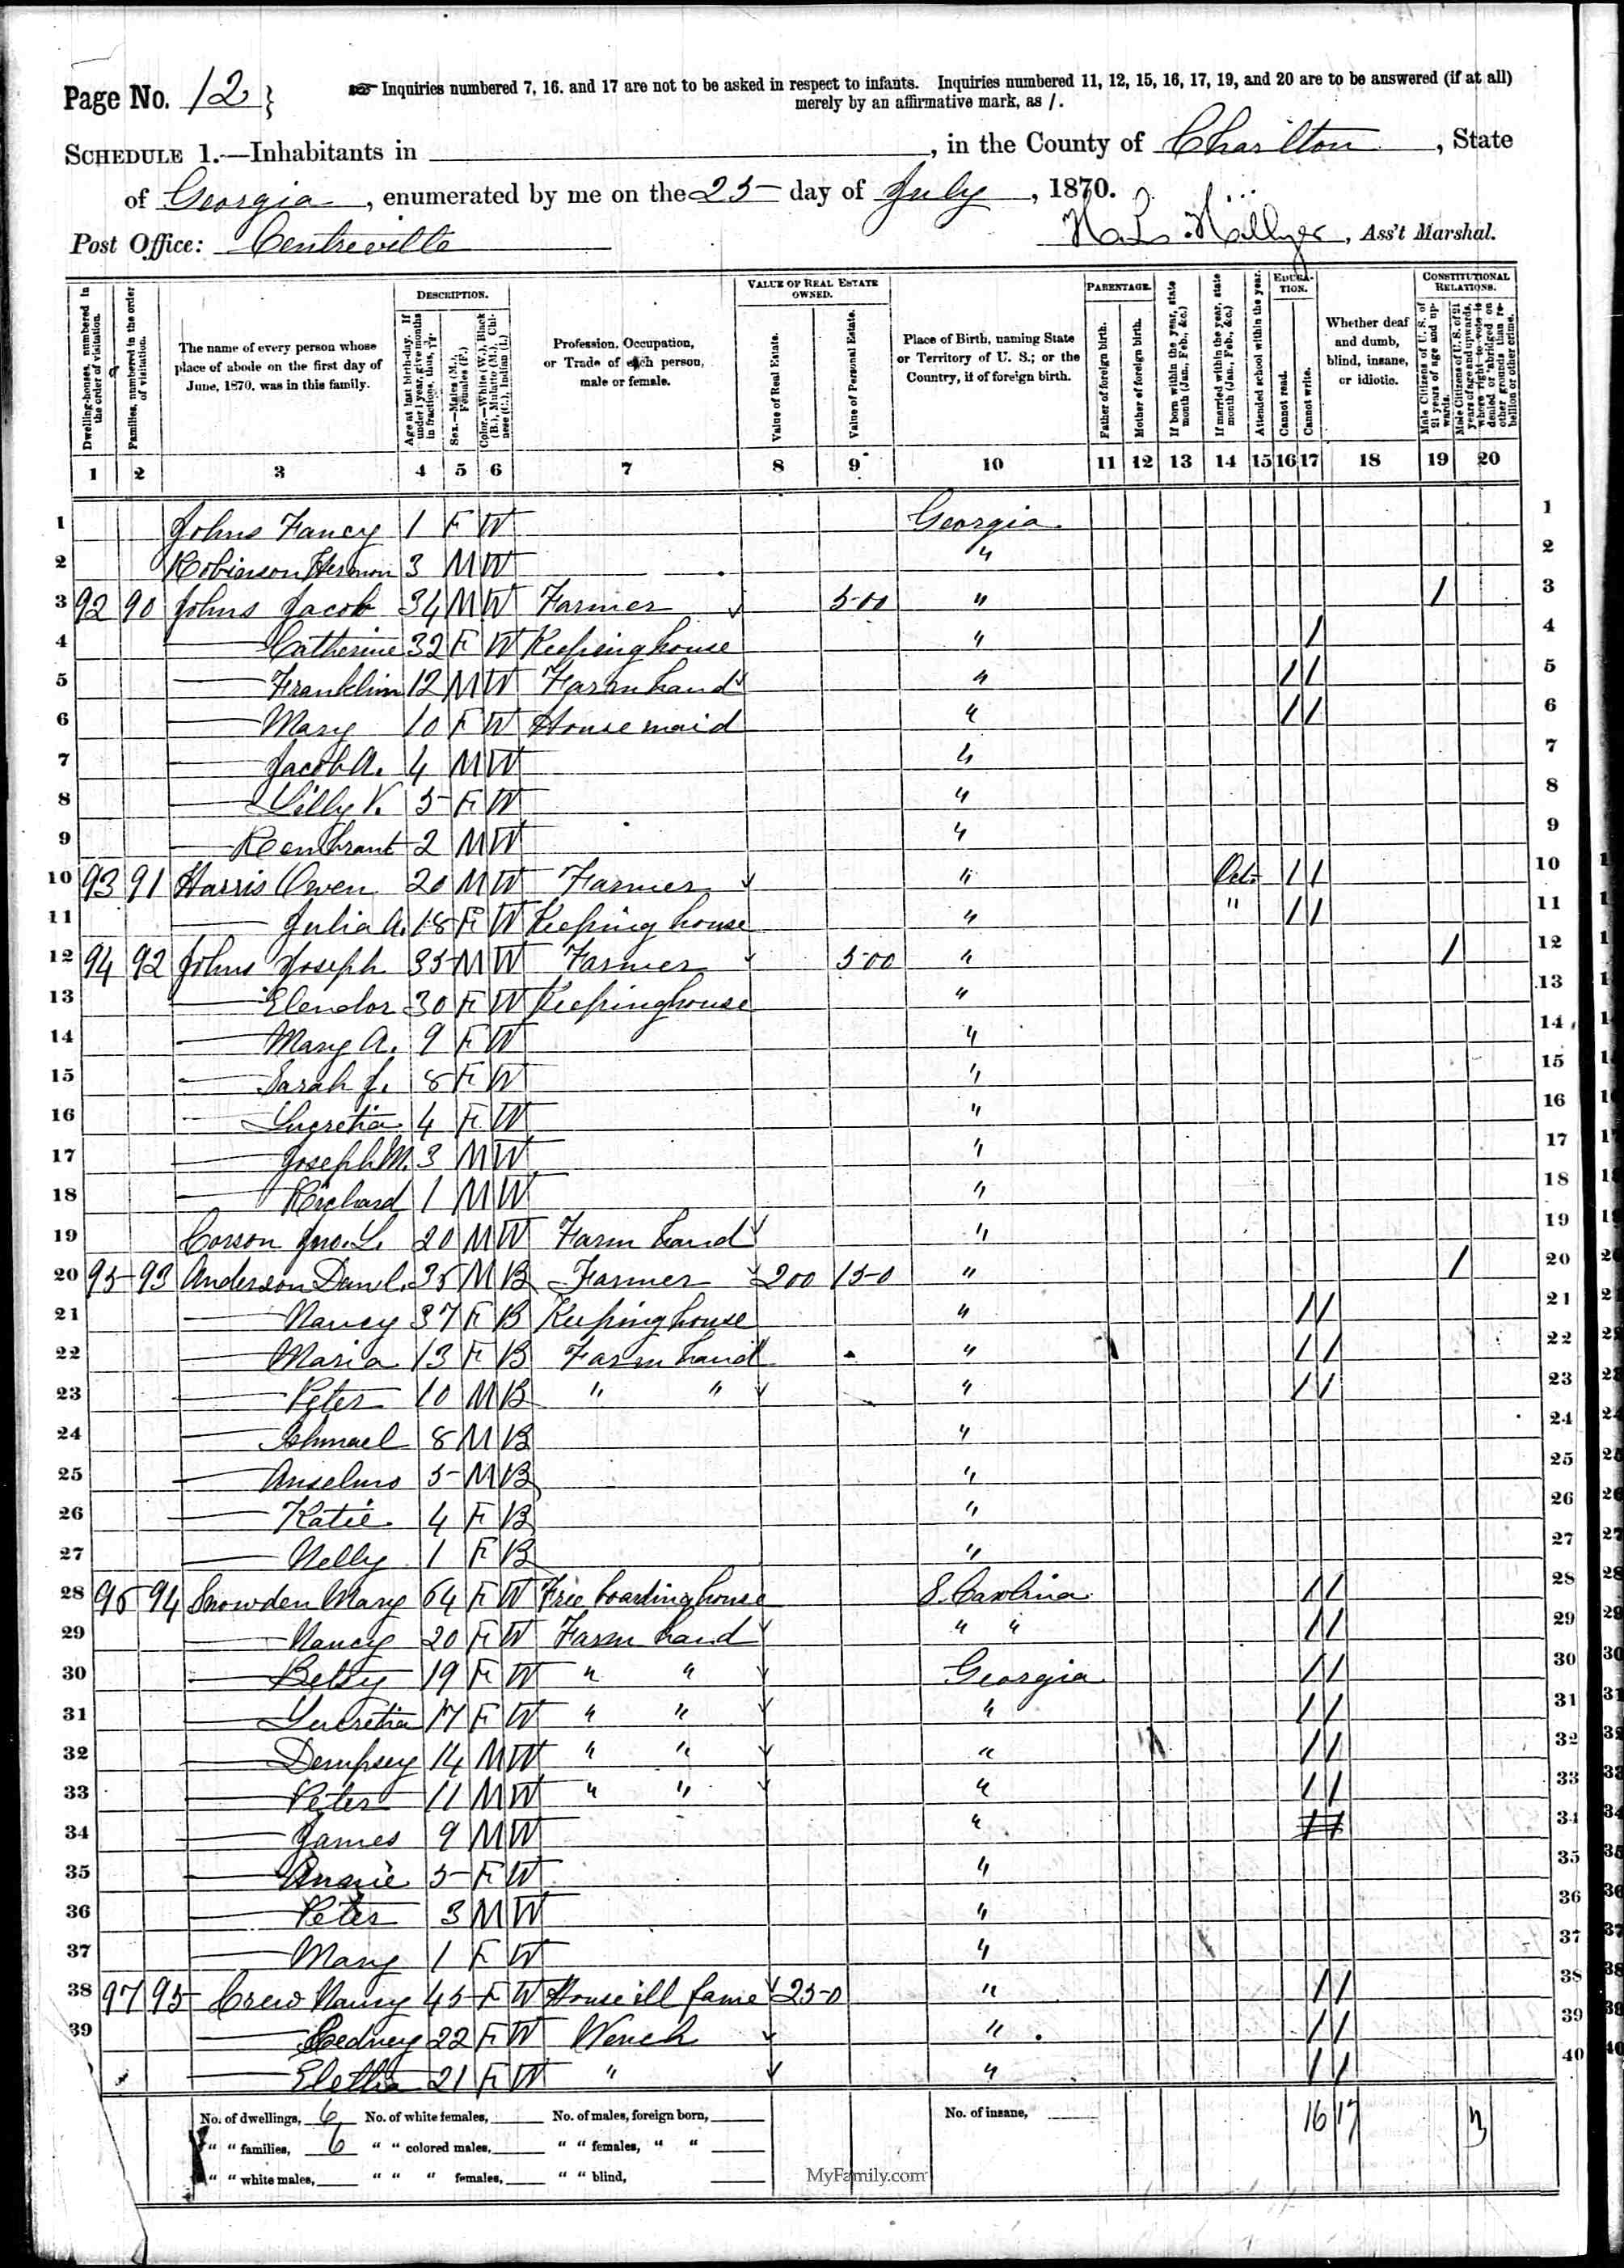 Page No. 12 } Inquiries numbered 7, 16. and 17 are not to be asked in respect to infants. Inquiries numbered 11, 12, 15, 16, 17, 19, and 20 are to be answered (if at all)
merely by an affirmative mark, as /.
SCHEDULE 1.—Inhabitants in , in the County of Charlton, State
of Georgia, enumerated by me on the 25 day of July, 1870.
Post Office: Centreville H. L. Hillyer, Ass't Marshal.
DESCRIPTION. VALUE OF REAL ESTATE OWNED. PARENTAGE. EDUCATION. CONSTITUTIONAL RELATIONS.
Dwelling-houses, numbered in the order of visitation.
Families, numbered in the order of visitation.
The name of every person whose place of abode on the first day of June, 1870. was in this family.
Age at last birth-day. If under 1 year, give months in fractions, thus,
Sex.—Males (M.), Females (F.)
Color.—White (W.), Black (B.), Mulatto (M.), Chinese (C.), Indian (I.)
Profession, Occupation, or Trade of each person, male or female.
Value of Real Estate.
Value of Personal Estate.
Place of Birth, naming State or Territory of U. S.; or the Country, if of foreign birth.
Father of foreign birth.
Mother of foreign birth.
If born within the year, state month (Jan., Feb., &c.)
If married within the year, state month (Jan., Feb., &c.)
Attended school within the year.
Cannot read.
Cannot write.
Whether deaf and dumb, blind, insane, or idiotic.
Male Citizens of U. S. of 21 years of age and upwards.
Male Citizens of U. S. of 21 years of age and upwards, whose right to vote is denied or abridged on other grounds than rebellion or other crime.
1 2 3 4 5 6 7 8 9 10 11 12 13 14 15 16 17 18 19 20
1 Johns Fancy 1 F W Georgia 1
2 Robinson Hermon 3 M W " 2
3 92 90 Johns Jacob 34 M W Farmer 500 " / 3
4 — Catherine 32 F W Keeping house " / 4
5 — Franklin 12 M W Farm hand " / / 5
6 — Mary 10 F W House maid " / / 6
7 — Jacob A. 4 M W " 7
8 — Lilly V. 5 F W " 8
9 — Rembrant 2 M W " 9
10 93 91 Harris Owen 20 M W Farmer " Oct / / 10
11 — Julia A. 18 F W Keeping house " " / / 11
12 94 92 Johns Joseph 35 M W Farmer 500 " / 12
13 — Elendor 30 F W Keeping house " 13
14 — Mary A. 9 F W " 14
15 — Sarah J. 8 F W " 15
16 — Lucretia 4 F W " 16
17 — Joseph M. 3 M W " 17
18 — Richard 1 M W " 18
19 Corson Jno. L. 20 M W Farm hand " 19
20 95 93 Anderson Danl. 35 M B Farmer 200 150 " / 20
21 — Nancy 37 F B Keeping house " / / 21
22 — Maria 13 F B Farm hand " / / 22
23 — Peter 10 M B " " " / / 23
24 — Ishmael 8 M B " 24
25 — Anselmo 5 M B " 25
26 — Katie 4 F B " 26
27 — Nelly 1 F B " 27
28 96 94 Snowden Mary 64 F W Free boarding house S. Carolina / / 28
29 — Nancy 20 F W Farm hand " " / / 29
30 — Betsy 19 F W " " Georgia / / 30
31 — Lucretia 17 F W " " " / / 31
32 — Dempsey 14 M W " " " / / 32
33 — Peter 11 M W " " " / / 33
34 — James 9 M W " 34
35 — 5 F W " 35
36 — Peter 3 M W " 36
37 — Mary 1 F W " 37
38 97 95 Crew Nancy 45 F W House ill fame 250 " / / 38
39 — Sedney 22 F W Wench " / / 39
— Eletha 21 F W " " / / 40
No. of dwellings, 6 No. of white females, No. of males, foreign born, No. of insane, 16 17 3
" " families, 6 " " colored males, " " females, " "
" " white males, " " " females, " " blind,
MyFamily.com